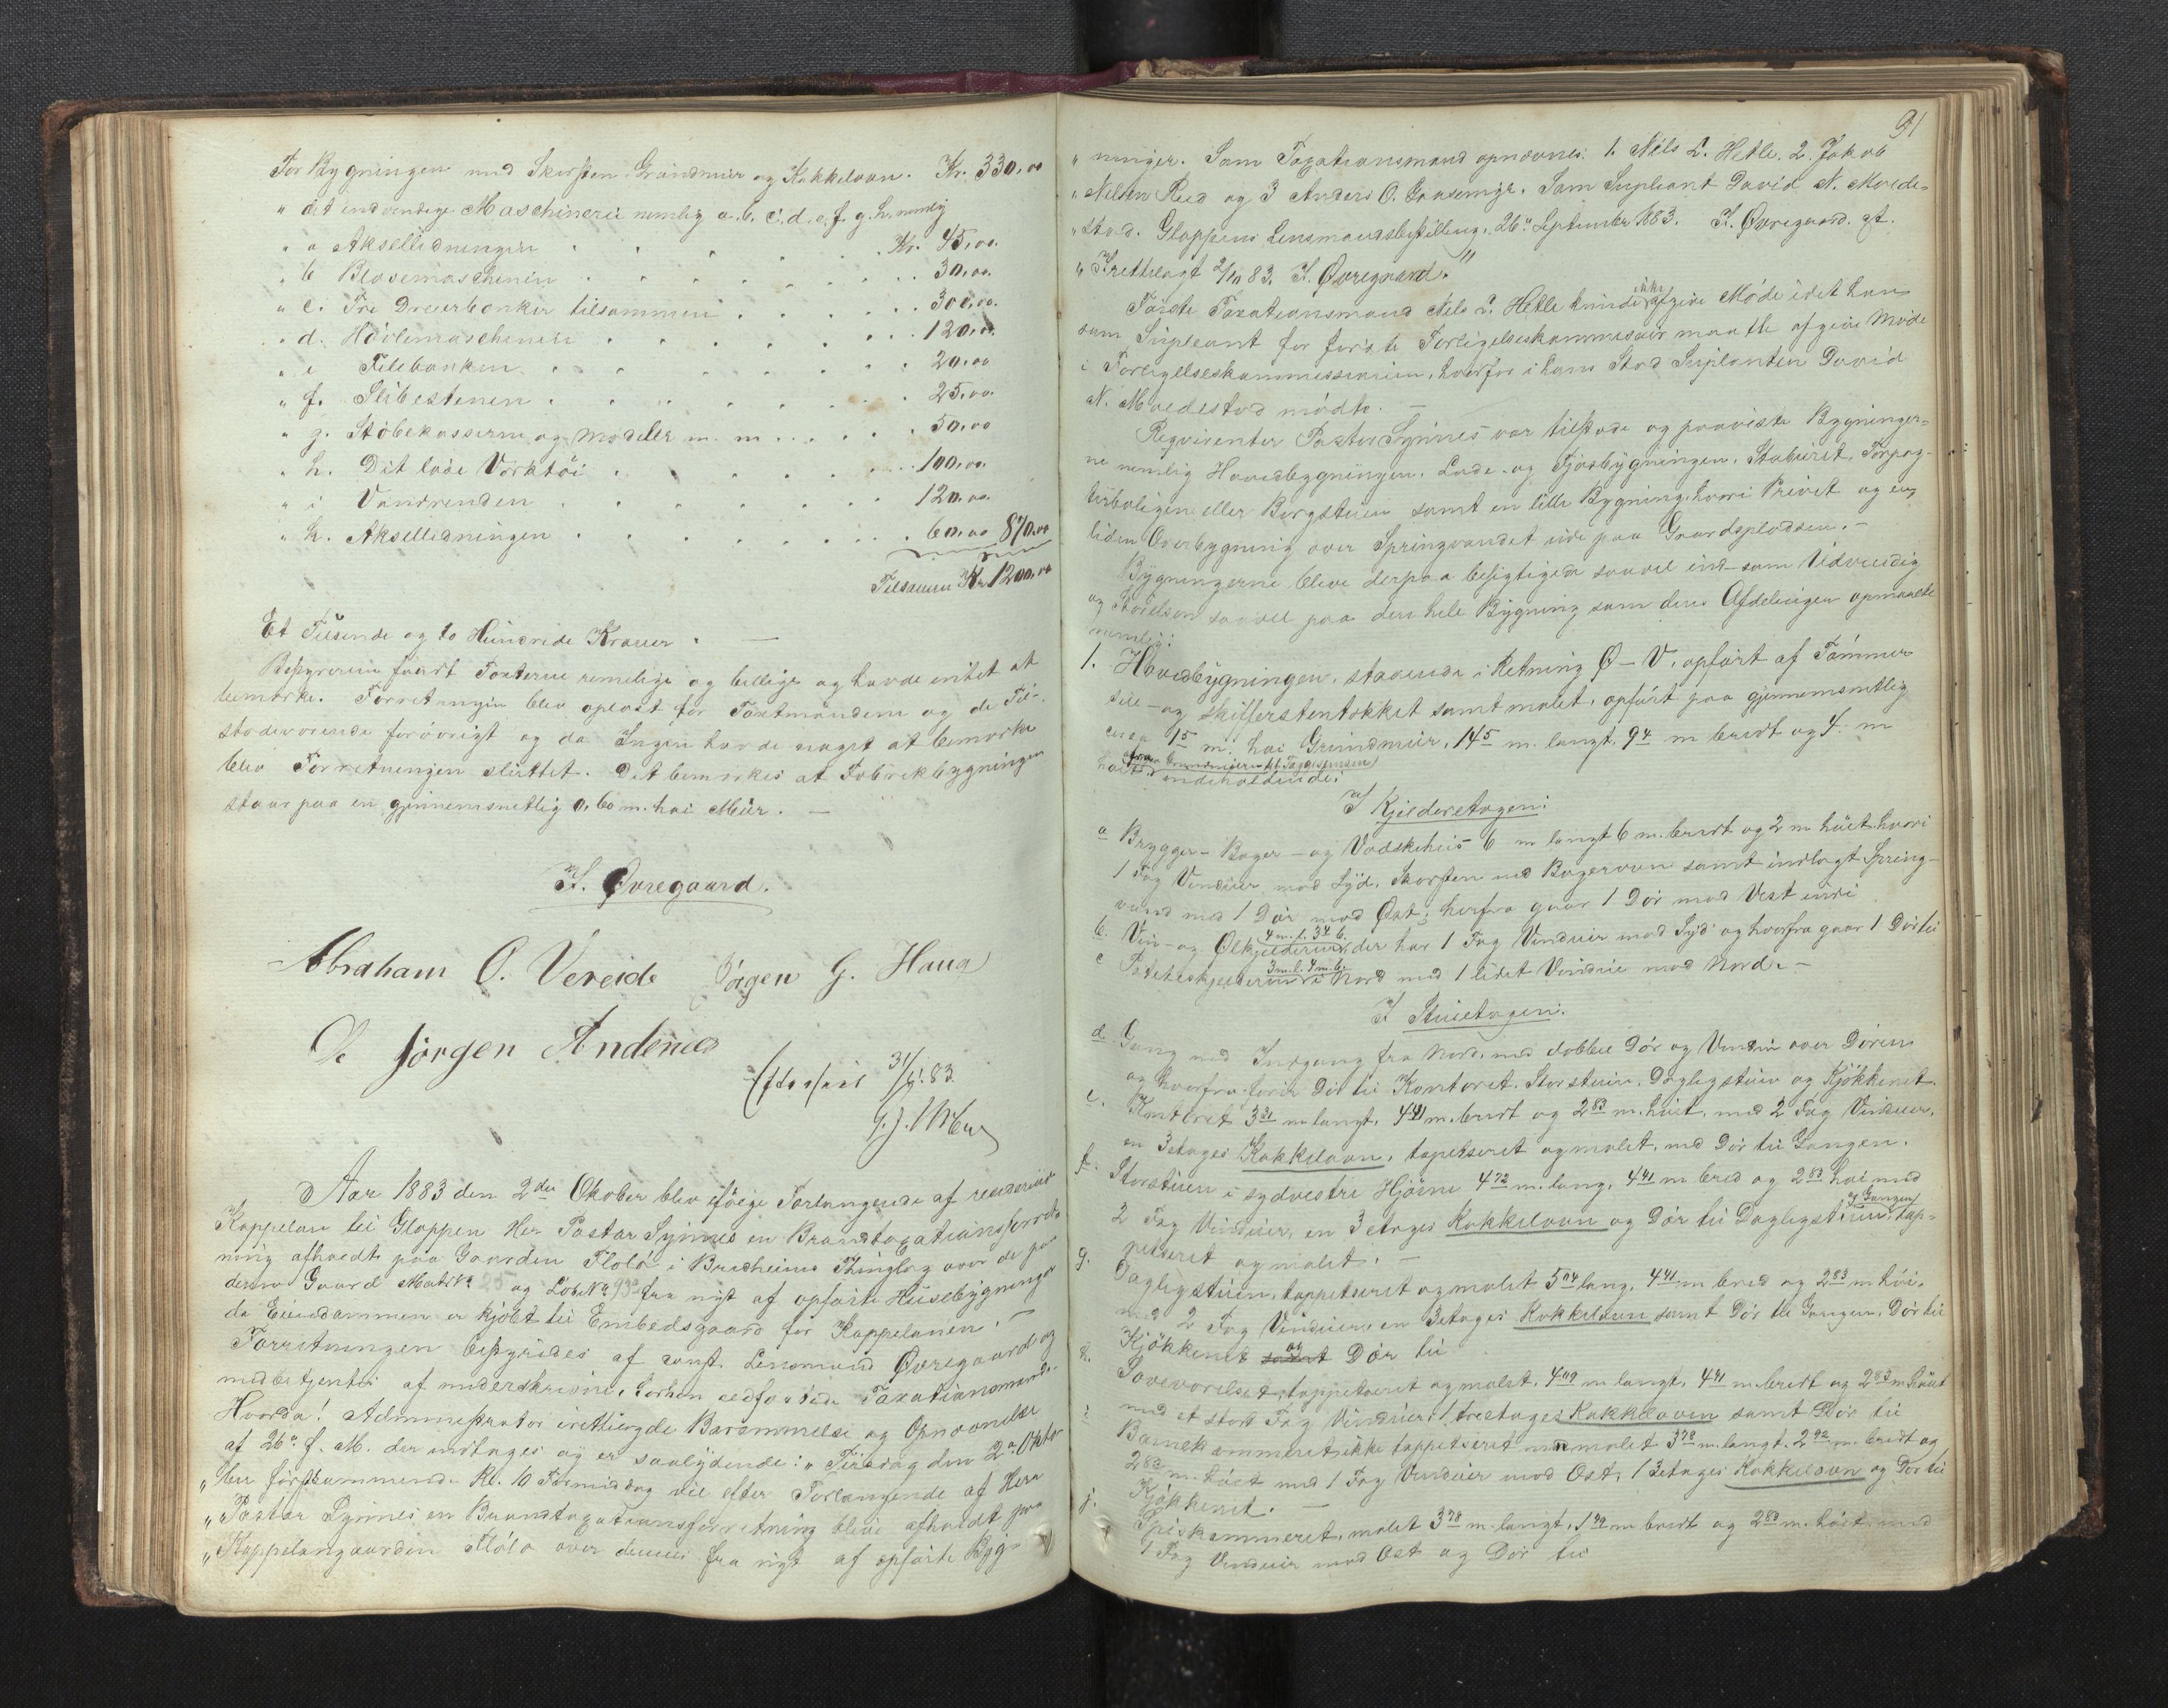 For Bygningen med Skorsten Grundmuur og Kakkelovn. Kr. 330,00
" det indvendige Maschineri nemlig a. b. c. d. e. f. g. h. nemlig
" a Aksellidningen . . . . . Kr. 45,00.
" b Blæsemaschinen . . . . . 30,00.
" c. Tre Dreierbænker tilsammen . . . . 300,00.
" d. Høvlemaschinen . . . . . 120,00.
" e Filebænken . . . . . 20,00
" f. Slibestenen . . . . . 25,00.
" g. Støbekasserne og Modeller m. m. . . . . 50,00
" h. Det løse Værktøi . . . . . 100,00.
" i Vandrenden . . . . . 120,00.
" k. Aksellidningen . . . . . 60,00 870,00
Tilsammen Kr 1200,00
Et Tusende og to Hundrede Kroner. —
Bestyreren fandt Taxterne rimelige og billige og havde intet at
bemærke. Forretningen blev oplæst for Taxtmændene og de Til-
stedeværende forøvrigt og da Ingen havde noget at bemærke
blev Forretningen sluttet. Det bemærkes at Fabrikbygningen
staar paa en gjennemsnitlig 0,60 m. høi Muur. —
I. Øvregaard.
Abraham O. Vereide Jörgen G. Haug
Jörgen Andenæs
Efterseet 31/ 83.
Aar 1883 den 2den Oktober blev ifølge Forlangende af residerende
Kappelan til Gloppen Her Pastor Synnes en Brandtaxationsforret-
ning afholdt paa Gaarden Flølo i Breheims Thinglag over de paa
denne Gaard Matr No 25 og Løbe No 93a fra nyt af opførte Huusebygninger
da Eiendommen er kjøbt til Embedsgaard for Kappelanen. —
Forretningen bestyredes af const. Lensmand Øvregaard og
medbetjentes af underskrevne, forhen edfæstede Taxationsmænd.
Hvorda! Administrator irettelagde Berammelse og Opnævnelse
af 26de f. M. der indtages og er saalydende: " Tirsdag den 2den Okto-
" ber førstkommende Kl. 10 Formiddag vil efter Forlangende af Herr
" Pastor Synnes en Brandtaxationsforretning blive afholdt paa
" Kappelangaarden Flölo over dennes fra nyt af opførte Byg-
91
" ninger. Som Taxationsmænd opnævnes: 1. Nils L. Hetle. 2. Jakob
" Nilsen Reed og 3 Anders O. Gaasemyr. Som Supleant David N. Moldes-
" stad. Gloppens Lensmandsbestilling, 26de September 1883. I. Øvregaard. cst.
" Irettelagt 2/10 83. I. Øvregaard."
Første Taxationsmand Nils L. Hetle kunde ikke afgive Møde idet han
som Supleant for første Forligelseskommissair maatte afgive Møde
i Forligelseskommissionen, hvorfor i hans Sted Supleanten David
N. Moldestad mødte. —
Reqvirenten Pastor Synnes var tilstede og paaviste Bygninger-
ne nemlig Hovedbygningen, Lade- og Fjøsbygningen, Staburet, Forpag-
terboligen eller Borgstuen samt en lille Bygning hvori Privet og en
liden Overbygning over Springvandet ude paa Gaardspladsen. —
Bygningerne bleve derpaa besigtigede saavel ind- som Udvendig
og Størelsen saavel paa den hele Bygning som dens Afdelinger opmaalte
nemlig:
1. Hovedbygningen, staaende i Retning Ø – V, opført af Tømmer
og skifferstentækket samt malet, opført paa gjennemsnitlig
circa 15 m. høi Grundmuur, 145 m. langt, 94 m bredt og 4. m
fra Grundmuren til Taggesimsen
høit, indeholdende:
I Kjelderetagen:
a Brygger- Bager- og Vadskehuus 6 m langt 6 m. bredt og 2 m høit hvori
1 Fag Vinduer mod Syd, Skorsten med Bagerovn samt indlagt Spring-
vand med 1 Dør mod Øst; herfra gaar 1 Dør mod Vest ind i
4 m. l. 34 b.
b. Viin- og Ølkjelderen der har 1 Fag Vinduer mod Syd og hvorfra gaar 1 Dør til
3 m. l. 4 m. b.
c Potetkjelderen i Nord med 1 lidet Vindue mod Nord. —
I Stueetagen:
d. Gang med Indgang fra Nord, med dobbel Dør og Vindue over Døren
og hvorfra fører Dør til Kontoret, Storstuen, Dagligstuen og Kjøkkenet.
e. Kontoret 331 m langt, 441 m. bredt og 283 m. høit, med 2 Fag Vinduer,
en 3etages Kakkelovn, tapetseret og malet, med Dør til Gangen.
f. Storstuen i sydvestre Hjørne 472 m. lang, 441 m bred og 283 høi med
og Gangen
2 Fag Vinduer, en 3 etages Kakkelovn og Dør til Dagligstuen, tap-
petseret og malet. —
g. Dagligstuen, tappetseret og malet 504 lang, 441 m bred og 283 m høi,
med 2 Fag Vinduer, en 3etages Kakkelovn samt Dør til Gangen, Dør til
Kjøkkenet samt og Dør til
h. Soveværelset, tappetseret og malet, 409 m langt, 441 m bredt og 283 m høit
med et stort Fag Vinduer, 1 treetages Kakkelovn samt Dør til
i Barnekammeret, ikke tappetseret men malet 378 m. langt, 292 m. bredt og
283 m. høit med 1 Fag Vinduer mod Øst, 1 3etages Kakkelovn og Dør til
Kjøkkenet. —
j. Spiskammeret, malet 378 m. langt, 142 m bredt og 283 m. høit med
1 Fag Vinduer mod Øst og Dør til